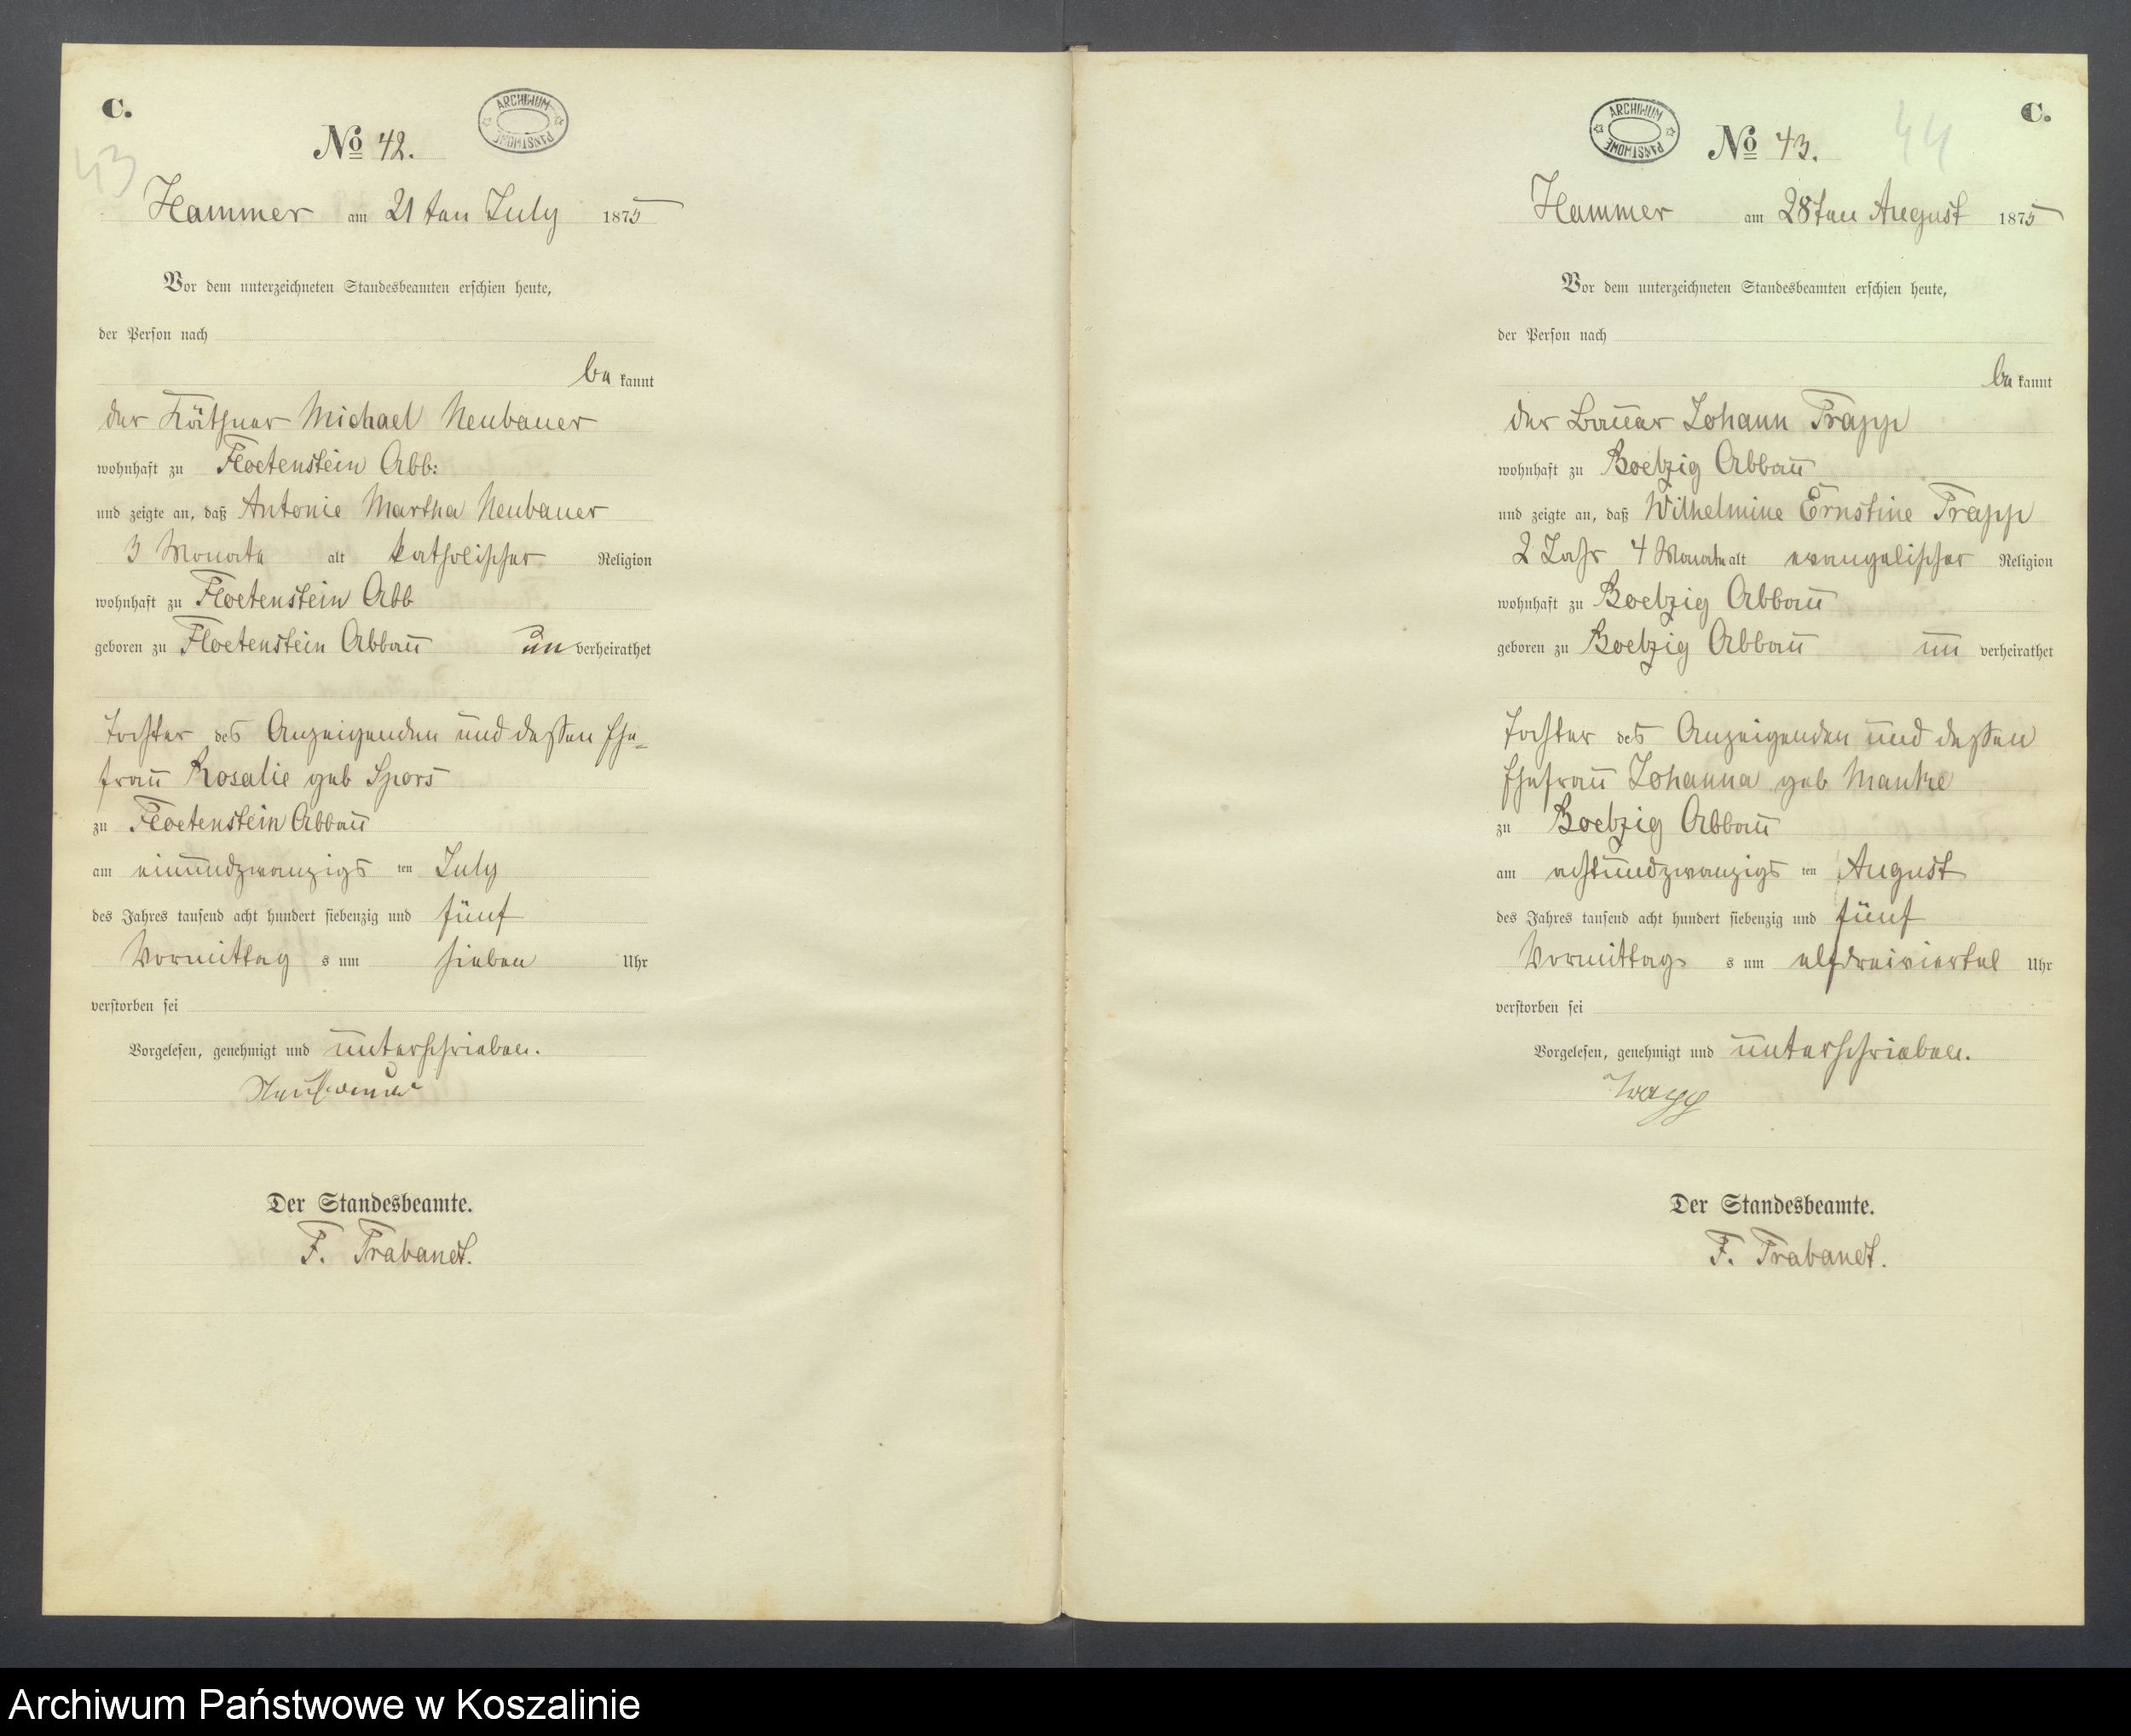 C.
43
ARCHIWUM PAŃSTWOWE
No 42.
Hammer am 21ten July 1875
Vor dem unterzeichneten Standesbeamten erschien heute,
der Person nach
be kannt
der Käthner Michael Neubauer
wohnhaft zu Floetenstein Abb:
und zeigte an, daß Antonie Martha Neubauer
3 Monate alt katholischer Religion
wohnhaft zu Floetenstein Abb
geboren zu Floetenstein Abbau un verheirathet
Tochter des Anzeigenden und dessen Ehe-
frau Rosalie geb Spors
zu Floetenstein Abbau
am einundzwanzigs ten July
des Jahres tausend acht hundert siebenzig und fünf
Vormittag s um sieben Uhr
verstorben sei
Vorgelesen, genehmigt und unterschrieben.
Der Standesbeamte.
F. Trabandt.
C.
44
ARCHIWUM PAŃSTWOWE
No 43.
Hammer am 28ten August 1875
Vor dem unterzeichneten Standesbeamten erschien heute,
der Person nach
be kannt
der Bauer Johann Trapp
wohnhaft zu Boetzig Abbau
und zeigte an, daß Wilhelmine Ernstine Trapp
2 Jahr 4 Monate alt evangelischer Religion
wohnhaft zu Boetzig Abbau
geboren zu Boetzig Abbau un verheirathet
Tochter des Anzeigenden und dessen
Ehefrau Johanna geb Manke
zu Boetzig Abbau
am achtundzwanzigs ten August
des Jahres tausend acht hundert siebenzig und fünf
Vormittags s um elfdreiviertel Uhr
verstorben sei
Vorgelesen, genehmigt und unterschrieben.
Trapp
Der Standesbeamte.
F. Trabandt.
Archiwum Państwowe w Koszalinie